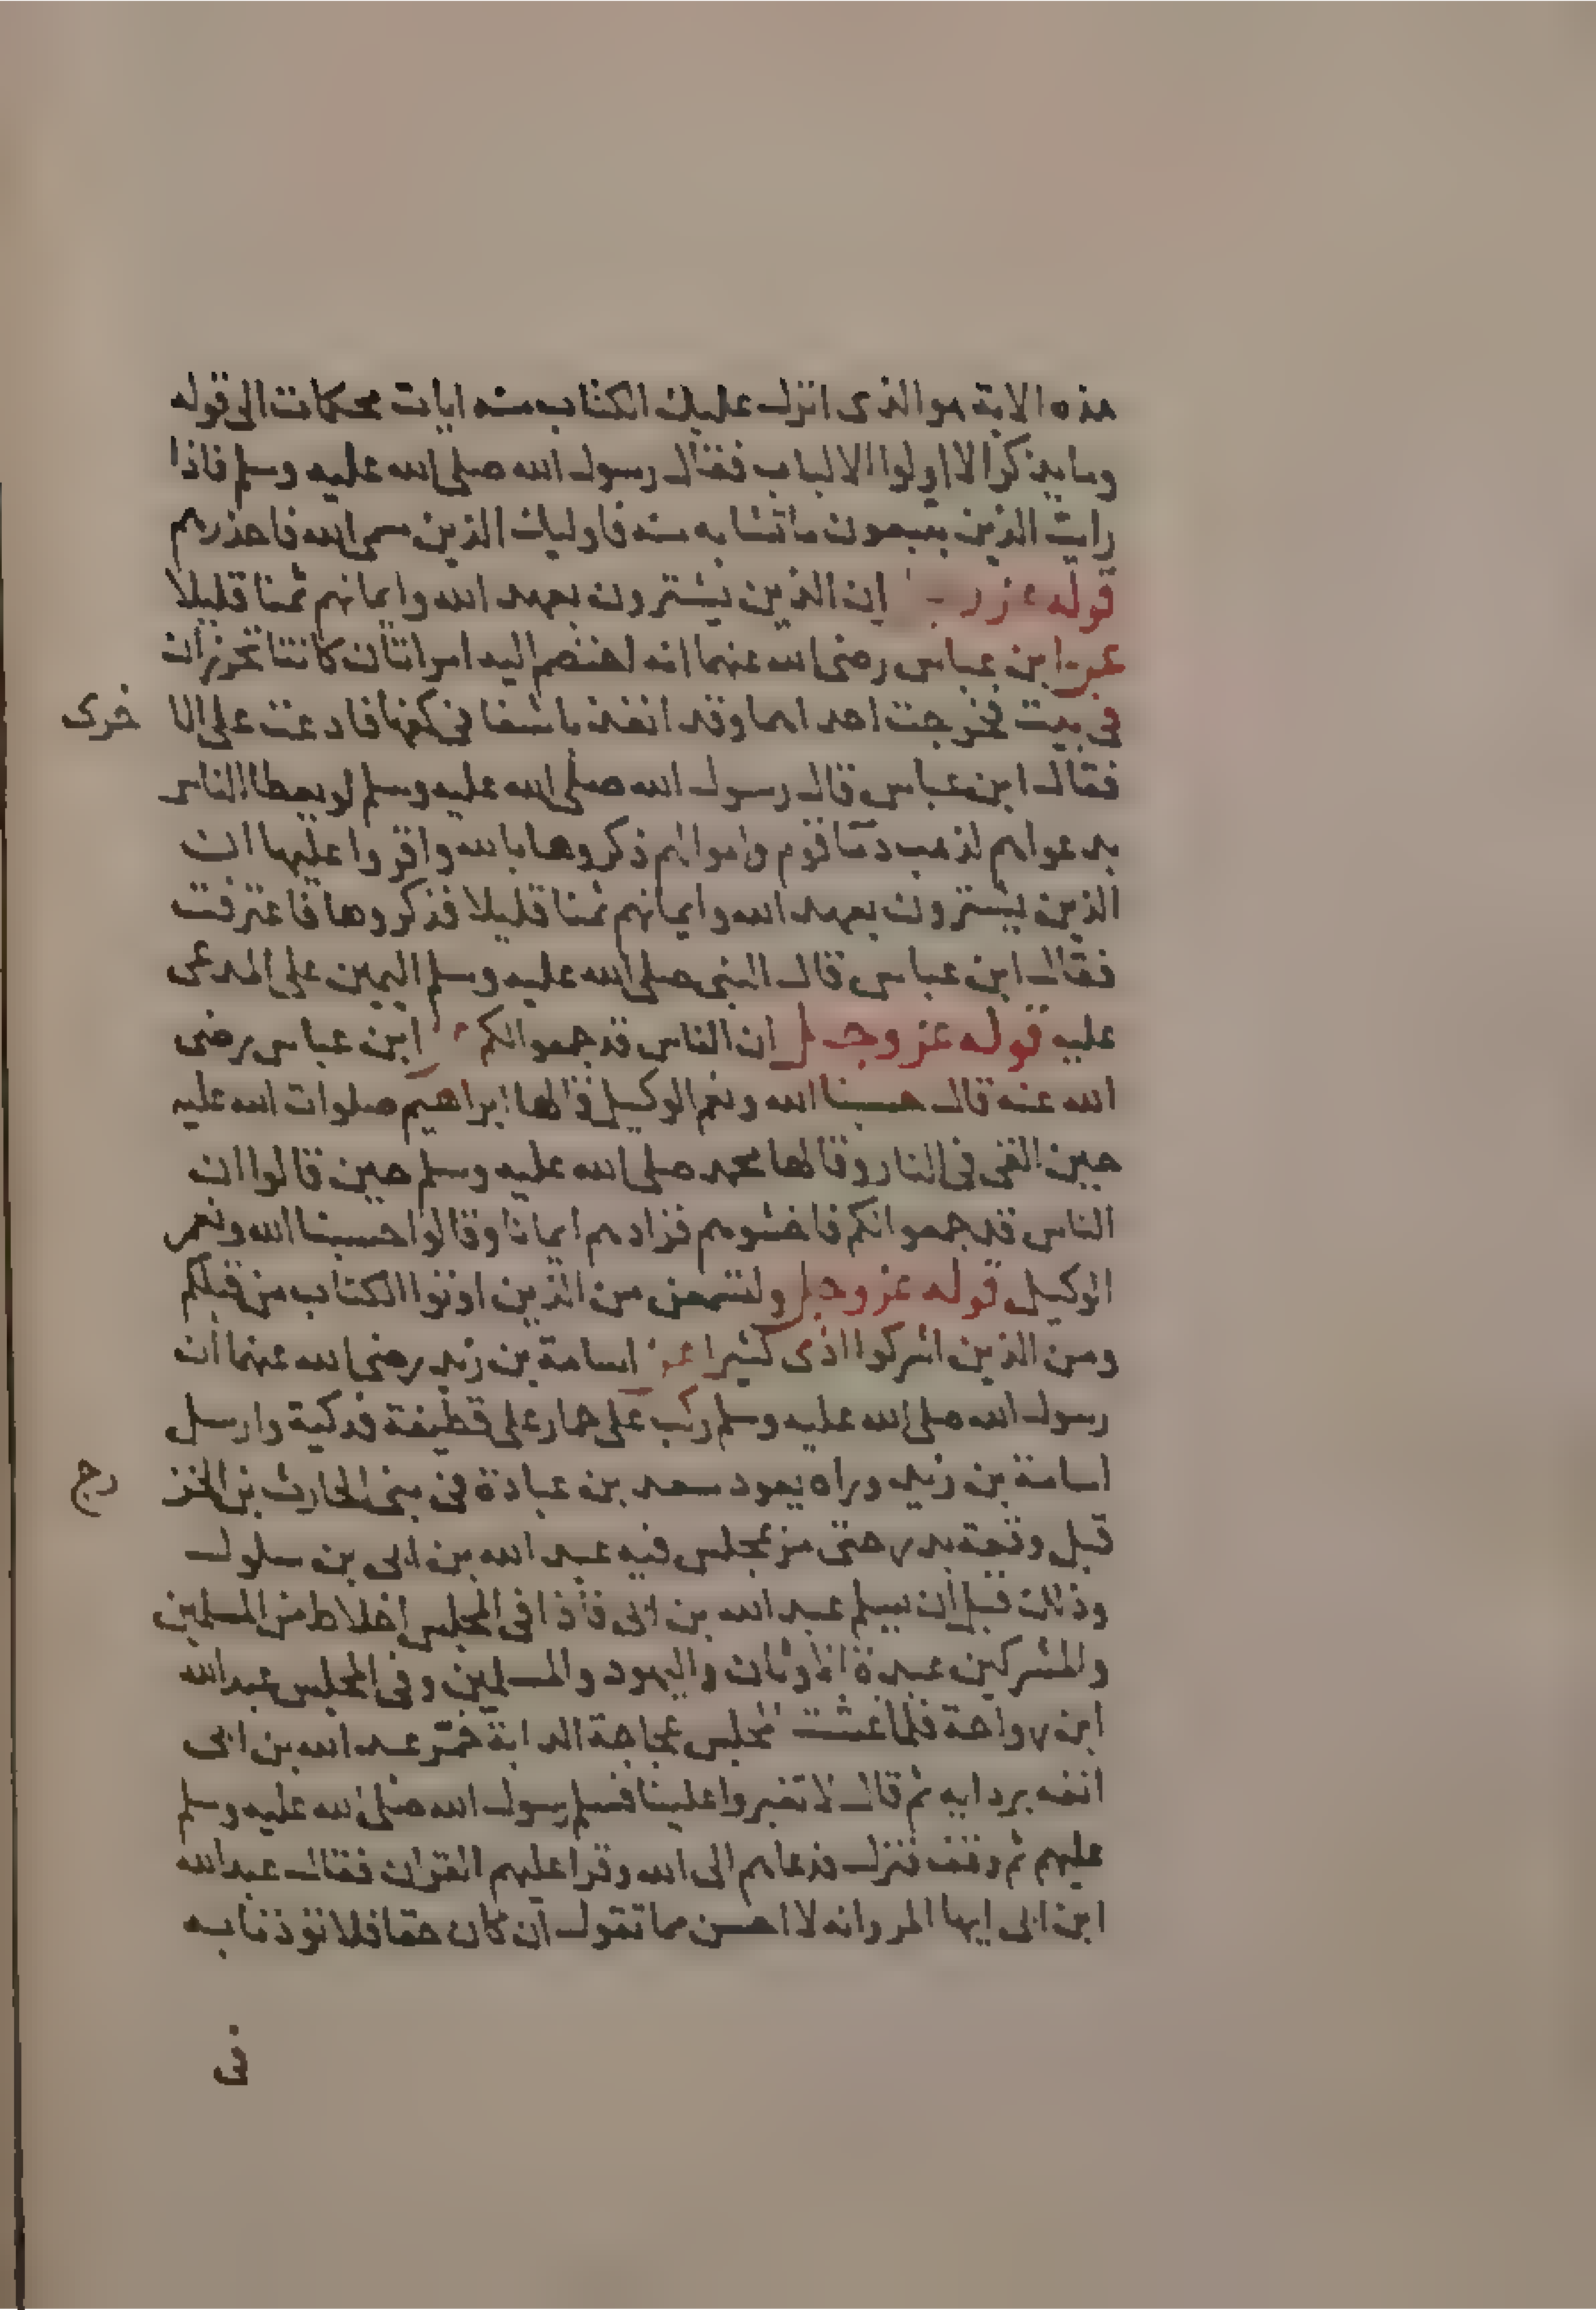 هذه الاية هو الذى انزل عليك الكتاب منه ايات محكمات الى قوله
وما يذكر الا اولوا الالباب فقال رسول الله صلى الله عليه وسلم فاذا
رايت الذين يتبعون ما تشابه منه فاوليك الذين سمى الله فاحذرهم
قوله عز ان الذين يشترون بعهد الله وايمانهم ثمنا قليلا
عن ابن عباس رضى الله عنهما انه اختصم اليه امراتان كانتا تخرزان
فى بيت فخرجت احداهما وقد انفذ باشفا فى كفها فادعت على الا
خرى
فقال ابن عباس قال رسول الله صلى الله عليه وسلم لو يعطا الناس
بدعواهم لذهب دما قوم واموالهم ذكروها بالله واقروا عليها ان
الذين يشترون بعهد الله وايمانهم ثمنا قليلا فذكروها فاعترفت
فقال ابن عباس قال النبى صلى الله عليه وسلم اليمين على المدعى
عليه قوله عز وجل ان الناس قد جمعوا لكم ابن عباس رضى
الله عنه قال حسبنا الله ونعم الوكيل قالها ابراهيم صلوات الله عليه
حين القى فى النار وقالها محمد صلى الله عليه وسلم حين قالوا ان
الناس قد جمعوا لكم فاخشوهم فزادهم ايمانا وقالوا حسبنا الله ونعم
الوكيل قوله عز وجل ولتسمعن من الذين اوتوا الكتاب من قبلكم
ومن الذين اشركوا اذى كثيرا عن اسامة بن زيد رضى الله عنهما ان
رسول الله صلى الله عليه وسلم ركب على حمار على قطيفة فدكية وارسل
اسامة بن زيد وراه يعود سعد بن عبادة فى بنى الحارث بن الخز
رج
قبل وقعة بدر حتى مر بمجلس فيه عبد الله بن ابى بن سلول
وذلك قبل ان يسلم عبد الله بن ابى فاذا فى المجلس اخلاط من المسلمين
والمشركين عبدة الاوثان واليهود والمسلمين وفى المجلس عبد الله
ابن رواحة فلما غشت المجلس عجاجة الدابة خمر عبد الله بن ابى
انفه بردايه ثم قال لا تغبروا علينا فسلم رسول الله صلى الله عليه وسلم
عليهم ثم وقف فنزل فدعاهم الى الله وقرا عليهم القران فقال عبد الله
ابن ابى ايها المر وانه لا احسن مما تقول ان كان حقا فلا توذنا به
فى